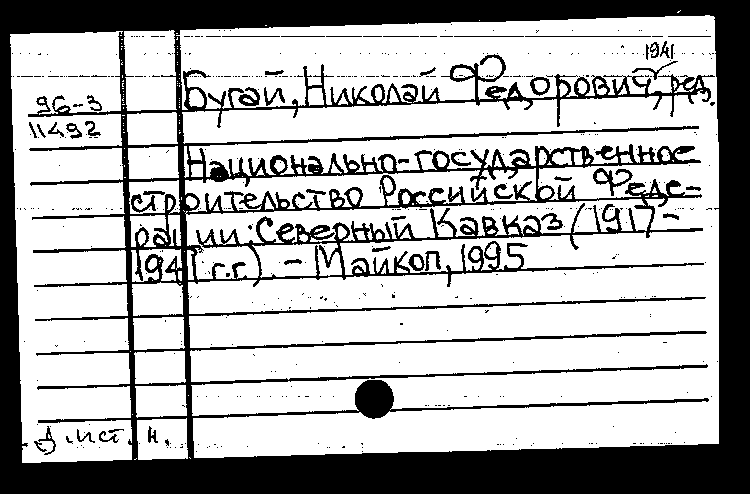 1941
96-3
11492
Бугай, Николай Федорович, ред.
Национально-государственное
строительство Российской Феде-
рации: Северный Кавказ (1917-
1941 г.г.). - Майкоп, 1995
д.ист.н.